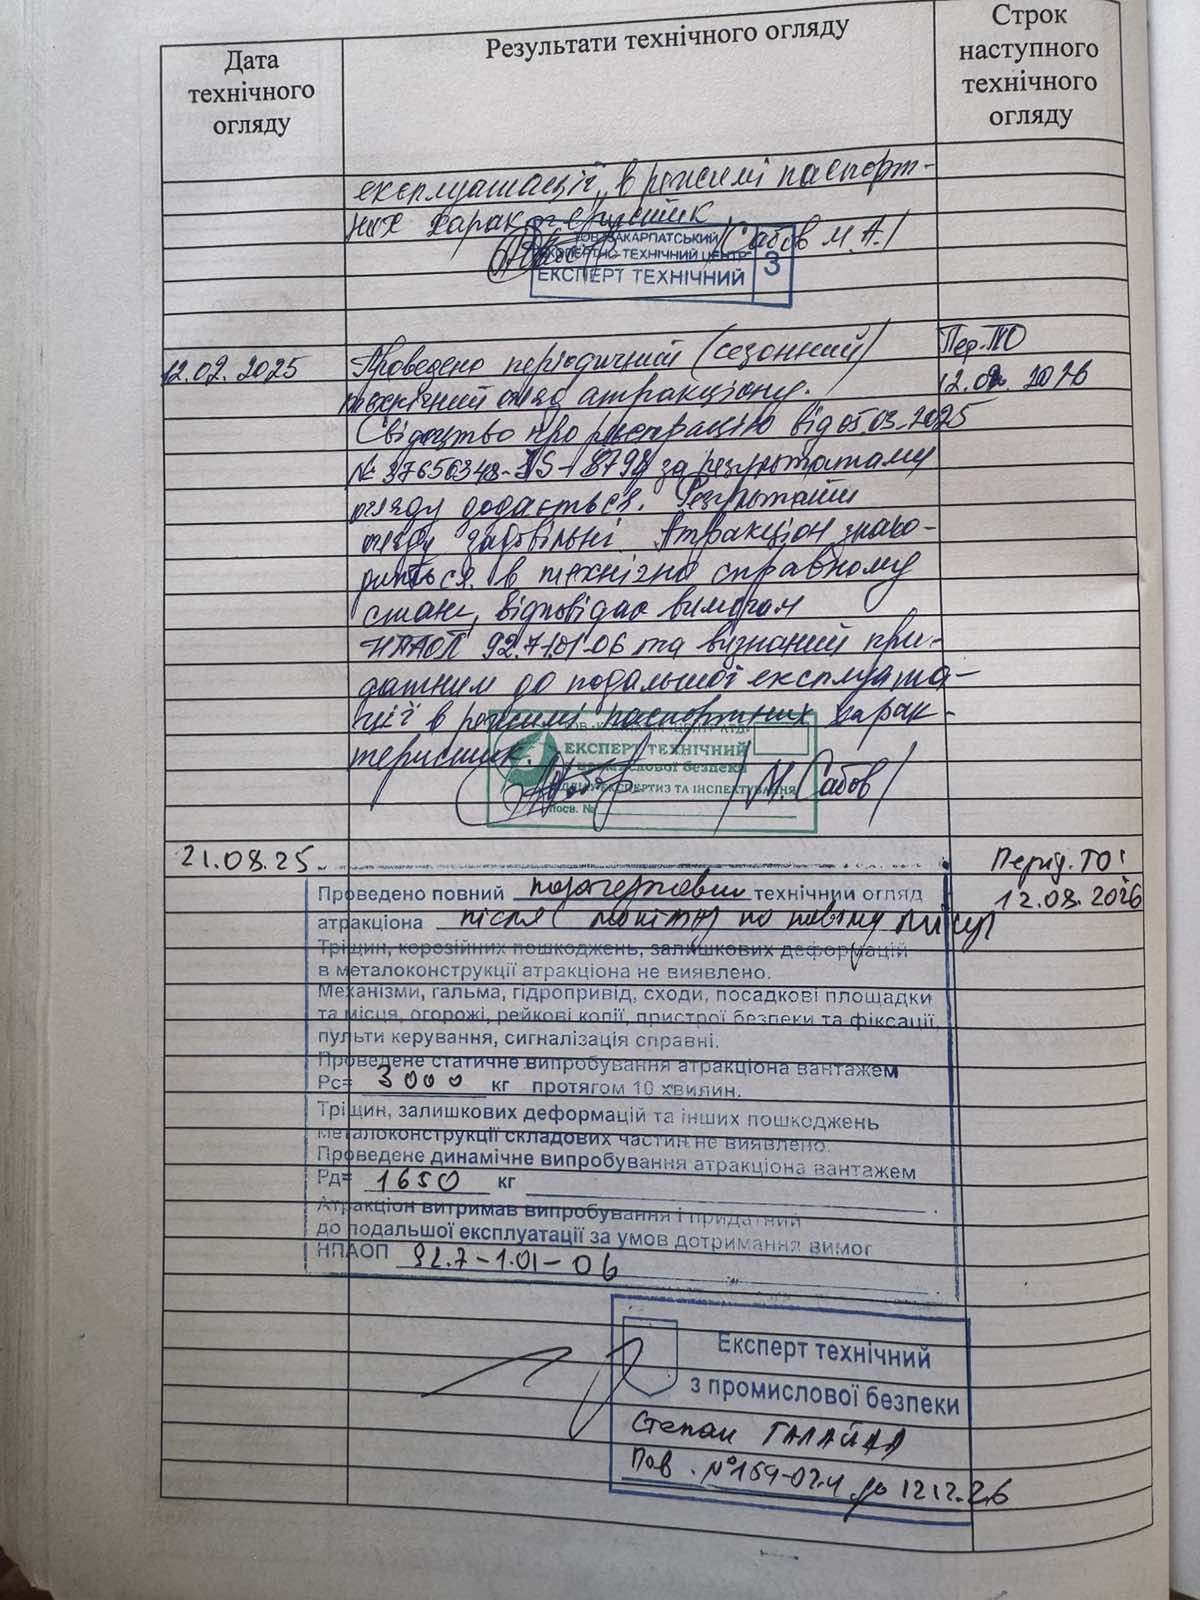 Дата технічного огляду
Результати технічного огляду
Строк наступного технічного огляду
експлуатації в режимі паспорт-
них характеристик
/Сабов М.А./
ТОВ "ЗАКАРПАТСЬКИЙ
ЕКСПЕРТНО-ТЕХНІЧНИЙ ЦЕНТР"
ЕКСПЕРТ ТЕХНІЧНИЙ
3
12.02.2025
Проведено періодичний (сезонний)
технічний огляд атракціону.
Свідоцтво про реєстрацію від 05.03.2025
№ 37656348-ІS-8798 за результатами
огляду додається. Результати
огляду задовільні. Атракціон знахо-
диться в технічно справному
стані, відповідає вимогам
НПАОП 92.7-1.01-06 та визнаний при-
датним до подальшої експлуата-
ції в режимі паспортних харак-
теристик.
Пер.ТО
12.02.2026
ЕКСПЕРТ ТЕХНІЧНИЙ
промислової безпеки
ЕКСПЕРТИЗ ТА ІНСПЕКТУВАННЯ
посв. №
/М. Сабов/
21.08.25
Період.ТО
12.08.2026
Проведено повний позачерговий технічний огляд
атракціона після (монтажу) по новому місці
Тріщин, корозійних пошкоджень, залишкових деформацій
в металоконструкції атракціона не виявлено.
Механізми, гальма, гідропривід, сходи, посадкові площадки
та місця, огорожі, рейкові колії, пристрої безпеки та фіксації,
пульти керування, сигналізація справні.
Проведене статичне випробування атракціона вантажем
Рс= 3000 кг протягом 10 хвилин.
Тріщин, залишкових деформацій та інших пошкоджень
металоконструкції складових частин не виявлено.
Проведене динамічне випробування атракціона вантажем
Рд= 1650 кг
Атракціон витримав випробування і придатний
до подальшої експлуатації за умов дотримання вимог
НПАОП 92.7-1.01-06
Експерт технічний
з промислової безпеки
Степан ГАЛАЙДА
Пов. №159-02.4 до 12.12.26